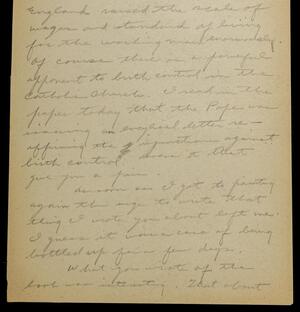 England raised the scale of
wages and standard of living
for the working man enormously.
Of course there is a powerful
opponent to birth control in the
Catholic Church. I read in the
paper today that the Pope was
issuing an encyclical letter re-
affirming the injunctions against
birth control. Doesn't that
give you a pain.
As soon as I got to painting
again the urge to write that
thing I wrote you about left me.
I guess it was a case of being
bottled up for a few days.
What you wrote of the
book was interesting. That about